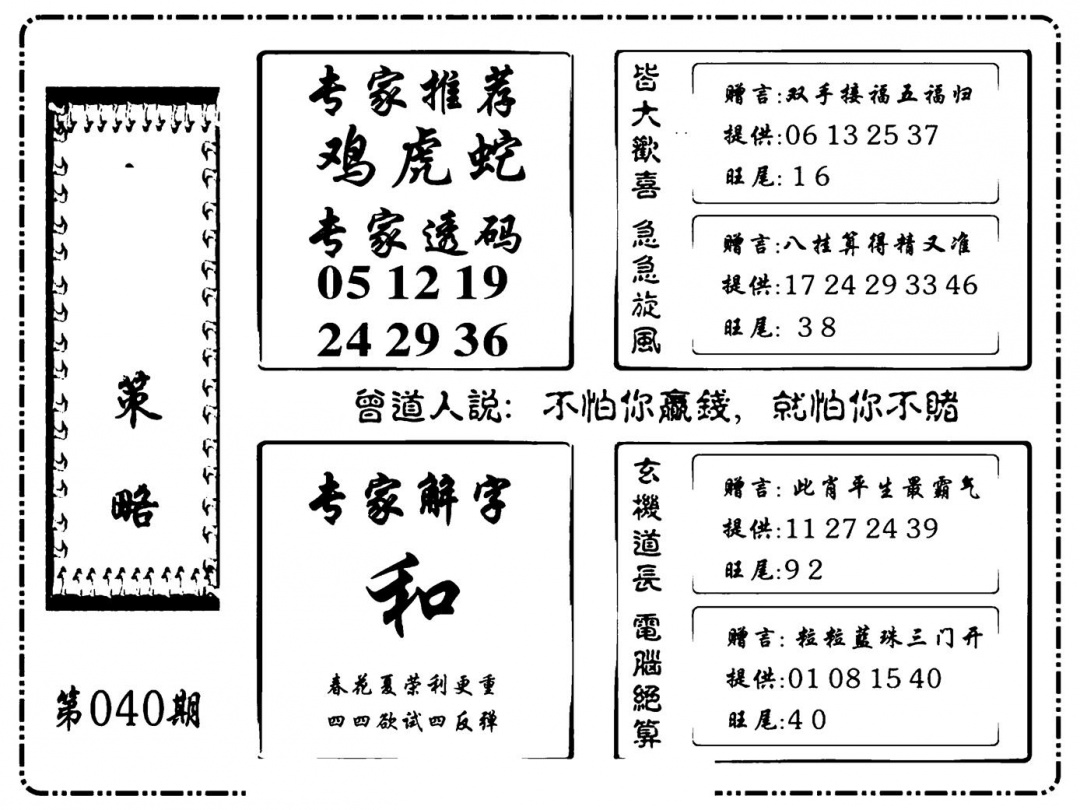 策略
第040期
专家推荐
鸡虎蛇
专家透码
05 12 19
24 29 36
皆大歡喜
赠言:双手接福五福归
提供:06 13 25 37
旺尾: 1 6
急急旋風
赠言:八挂算得精又准
提供:17 24 29 33 46
旺尾: 3 8
曾道人説: 不怕你贏錢, 就怕你不賭
专家解字
和
春花夏荣利更重
四四欲试四反弹
玄機道長
赠言: 此肖平生最霸气
提供:11 27 24 39
旺尾:9 2
電腦絕算
赠言: 粒粒蓝珠三门开
提供:01 08 15 40
旺尾:4 0